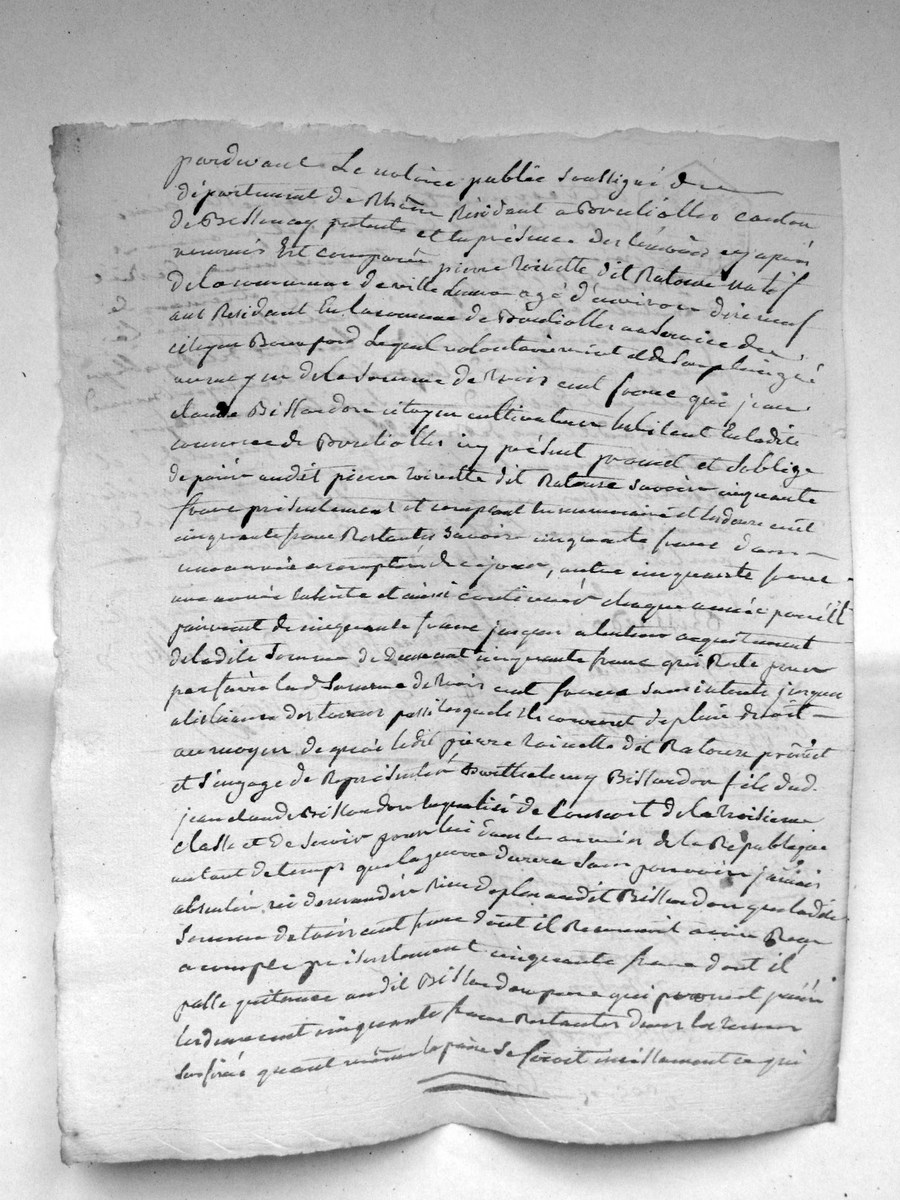 pardevant Le notaire public soussigné du
département du Rhône Résidant a Poulliolles canton
de Bessenay patenté et en présence des témoins cy après
nommés Est comparu pierre Loivette dit Ratouse natif
de la commune de ville agé d'environ dixneuf
ans Résidant En la commune de Poulliolles au service du
citoyen Bonnford Lequel volontairement et de son plein gré
au moyen de la somme de trois cent francs que jean
claude Bissardon citoyen cultivateur habitant En ladite
commune de Poulliolles icy présent promet et s'oblige
de païer audit pierre Loivette dit Ratouse savoir cinquante
francs présentement et comptant en numeraire et les deux cent
cinquante francs Restantes savoir cinquante francs dans
une année a compter de ce jour, autre cinquante francs
une année ensuite et ainsi continuer chaque année pareill
paiement de cinquante francs jusqua a lentier acquittement
de ladite somme de deux cent cinquante francs qui Reste pour
parfaire lad somme de trois cent francs sans interets jusques
a lechéance des termes passé lesquels ils courront de plein droit
au moyen de quoi ledit pierre Loivette dit Ratouse promet
et s'engage de Représenter Barthelemy Bissardon fils dud.
jean claude Bissardon en qualité de Conscrit de la troisieme
classe et de servir pour lui dans les armées de la République
autant de temps que la guerre durera sans pouvoir jamais
absenter ni demander Rien de plus audit Bissardon que ladite
somme de trois cent francs dont il Reconnoit avoir Reçu
a compte présentement cinquante francs dont il
passe quitance audit Bissardon pere qui promet païer
les deux cent cinquante francs Restantes dans les termes
susfixés quant même la paix se feroit incessamment ce qui